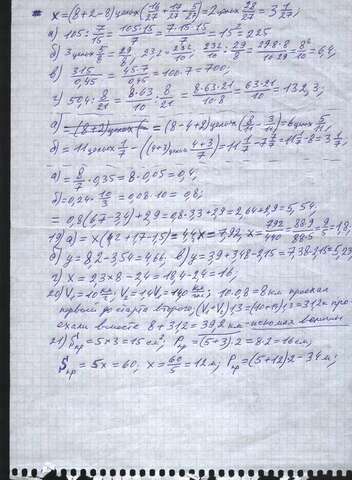 x=(8+2-8)целых(16/27+17/27-5/27)=2целых 28/27=3 1/27;
а) 105:7/15=105·15/7=7·15·15/7=15²=225
б) 3целых 5/8=29/8, 23,2=232/10, 232/10:29/8=29·8·8/10·29=8²/10=6,4,
в) 315/0,45=45·7/0,45=100·7=700,
г) 50,4:8/21=8·63·8/10·21=8·63·21/10·8=63·21/10=132,3,
=(8-4+2)целых(8/11-3/11)=6целых 5/11,
б=11целых 1/7-((4+3)целых 4+3/7)=11 1/7-7 7/7=11 1/7-8=3 1/7,
а)=8/7·0,35=8·0,05=0,4,
б=0,24·10/3=0,08·10=0,8;
=0,8(6,7-3,4)+2,9=0,8·3,3+2,9=2,64+2,9=5,54,
19) а)=x(4,2+1,7-1,5)=4,4x=7,92, x=792/440=88·9/88·5=9/5=1,8,
б) y=8,2-3,54=4,66, в) y=3,9+3,48-2,15=7,38-2,15=5,23
г) x=2,3×8-2,4=18,4-2,4=16,
20) V₁=10 км/ч; V₂=1,4V₁=14 км/ч; 10·0,8=8км проехал
первый до старта второго, (V₁+V₂)13=(10+14)13=312км про-
ехали вместе 8+312=392км-искомая величина
21) Sпр=5×3=15см², Pпр=(5+3)·2=8·2=16см,
Sпр=5x=60, x=60/5=12м, Pпр=(5+12)·2=34м;